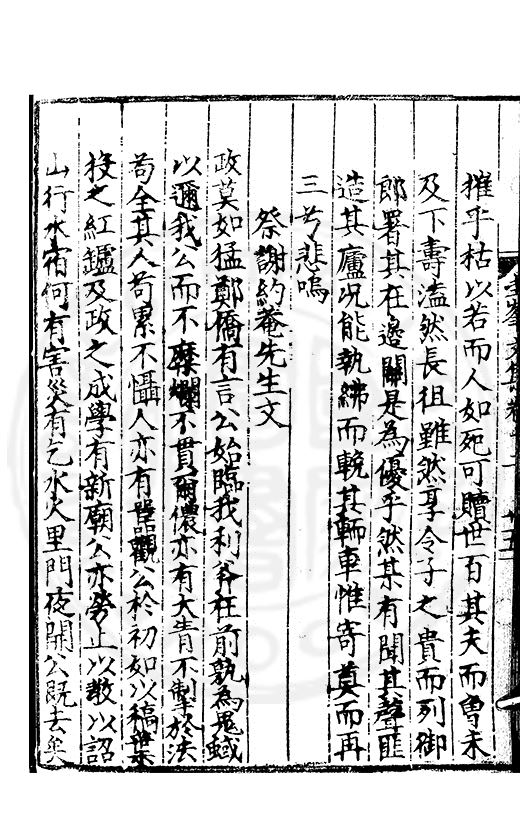 摧乎枯以若而人如死可贖世百其夫而曾未
及下壽溘然長徂雖然享令子之貴而列御
郎署其在邊關是為優乎然某有聞其聲匪
造其廬況能執紼而輓其輀車惟寄奠而再
三兮悲嗚
祭謝約菴先生文
政莫如猛鄭僑有言公始臨我利斧在前孰為鬼蜮
以邇我公而不糜爛不貫爾儂亦有大眚不掣於法
苟全其人苟累不懾人亦有甌觀公於初如以稿葉
投之紅鑪及政之成學有新廟公亦旁止以教以詔
山行水宿何有害災有乞水火里門夜開公既去矣